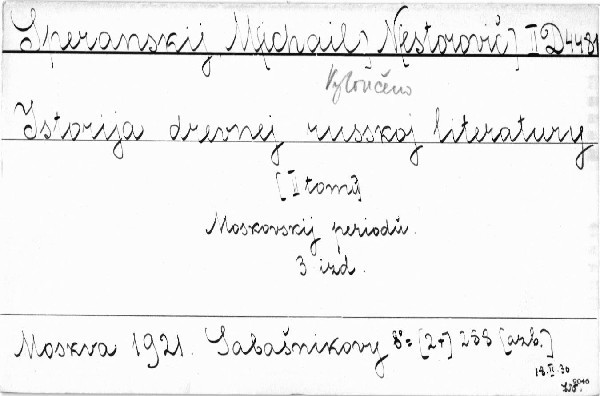 Speranskij M[ichail] N[estorovič] II D 4481
Vyloučeno
Istorija drevnej russkoj literatury
[II tomŭ]
Moskovskij periodŭ.
3 izd.
Moskva 1921. Sabašnikovy 8° [2+] 288 [azb.]
18.II.30